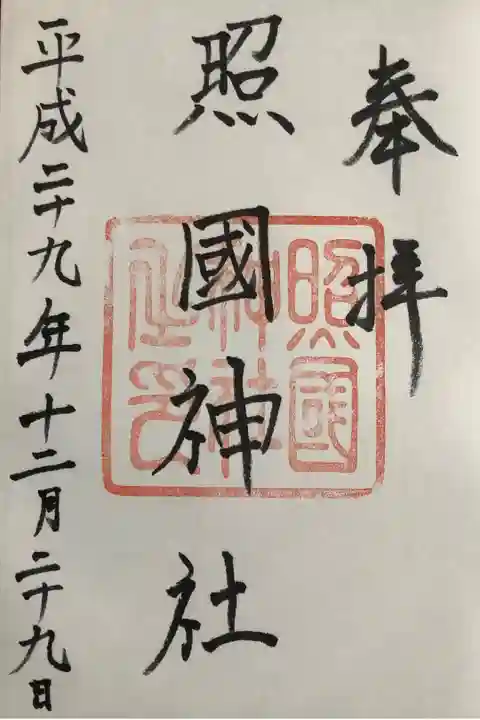 奉拝
照國神社
照國
神社
之印
平成二十九年十二月二十九日